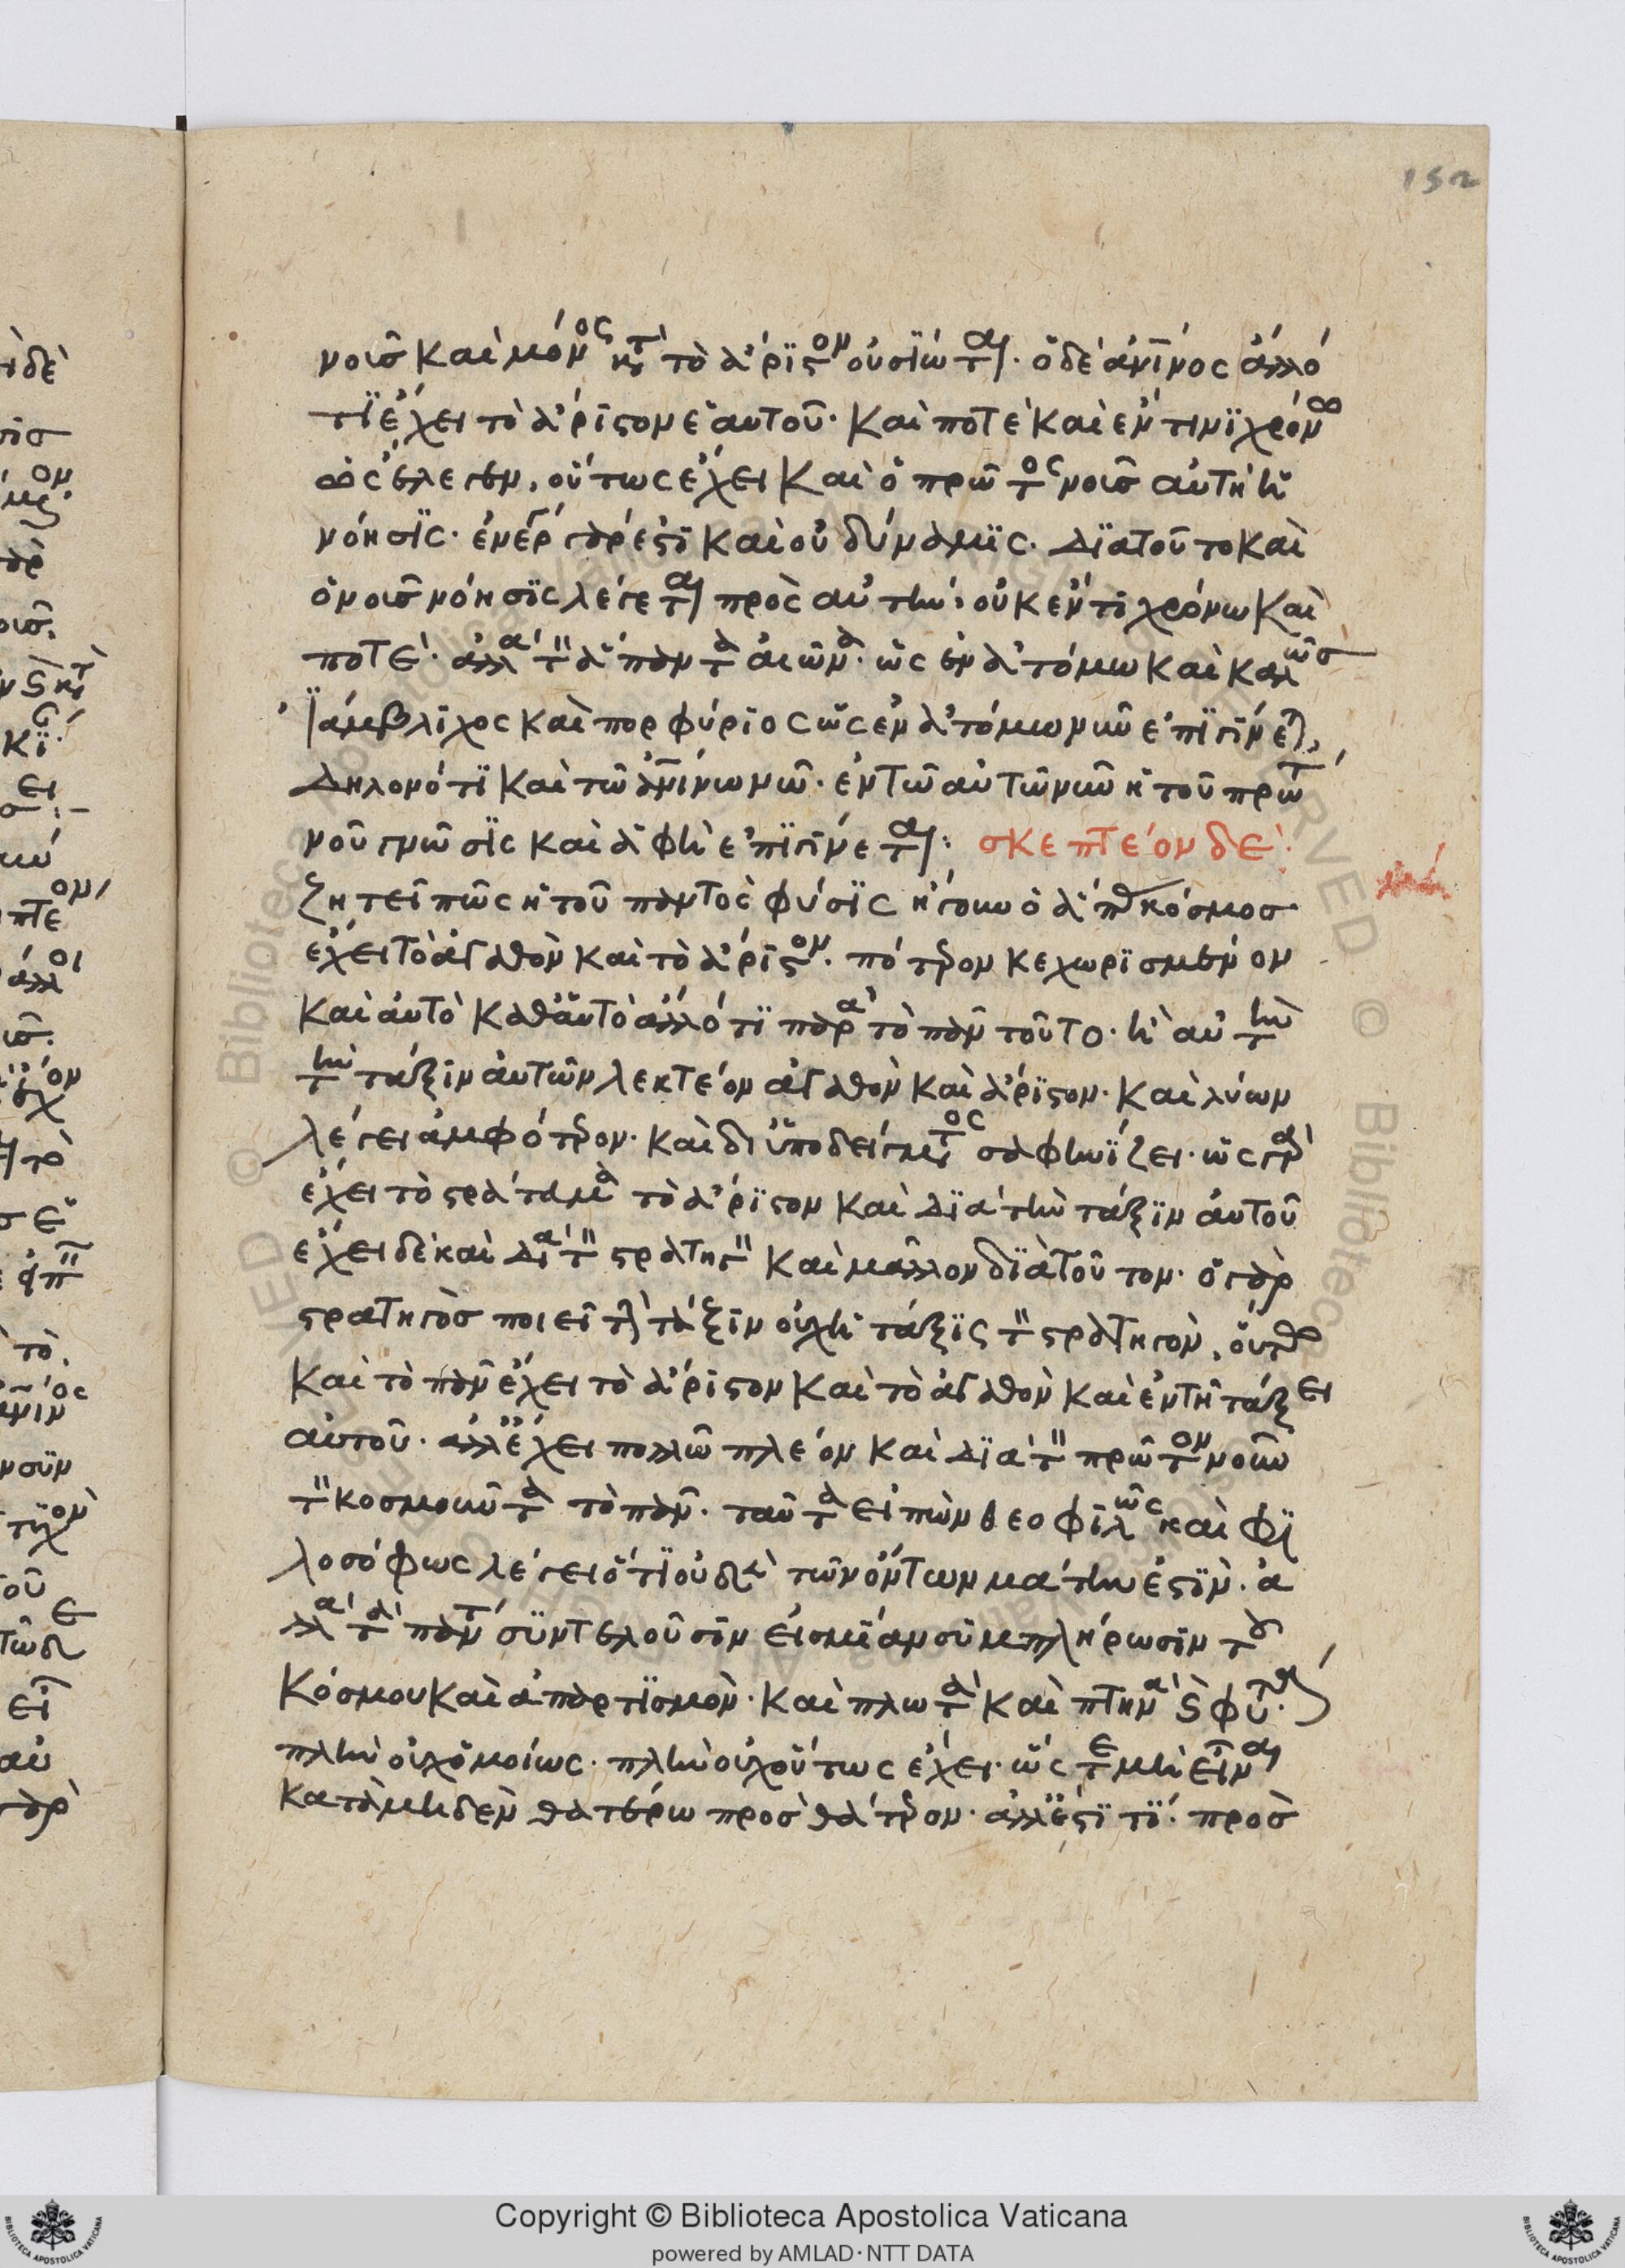 152
νοῦς καὶ μόνος κατὰ τὸ ἄριστον οὐσίωται. ὁ δὲ ἀνθρώπινος ἄλλο
τι ἔχει τὸ ἄριστον ἑαυτοῦ. καὶ ποτὲ καὶ ἔν τινι χρόνω
ὡς ἔλεγεν, οὕτως ἔχει καὶ ὁ πρῶτος νοῦς αὐτὴ ἡ
νόησις. ἐνέργεια γάρ ἐστι καὶ οὐ δύναμις. διατοῦτο καὶ
ὁ νοῦς νόησις λέγεται πρὸς αὐτὴν, οὐκ ἔν τι χρόνω καὶ
ποτέ. ἀλλὰ τὸν ἅπαντα αἰῶνα. ὡς ἐν ἀτόμω καὶ καλῶς
Ἰάμβλιχος καὶ πορφύριος ὡς ἐν ἀτόμω νῦν ἐπιγίνεται,
δηλονότι καὶ τῶ ἀνθρωπίνω νῶ. ἐν τῶ αὐτῶ νῦν ἡ τοῦ πρώτου
νοῦ γνῶσις καὶ ἁφὴ ἐπιγίνεται: σκεπτέον δέ.
ζητεῖ πῶς ἡ τοῦ παντὸς φύσις ἤγουν ὁ ἅπας κόσμος
ἔχει τὸ ἀγαθὸν καὶ τὸ ἄριστον. πότερον κεχωρισμένον
καὶ αὐτὸ καθαὑτὸ ἄλλό τι παρὰ τὸ πᾶν τοῦτο. ἢ αὐτὴν
τὴν τάξιν αὐτῶν λεκτέον ἀγαθὸν καὶ ἄριστον. καὶ λύων
λέγει ἀμφότερον. καὶ δι ὑποδείγματος σαφηνίζει. ὡς γὰρ
ἔχει τὸ στράτευμα τὸ ἄριστον καὶ δια τὴν τάξιν αὐτοῦ
ἔχει δὲ καὶ δια τὸν στρατηγὸν καὶ μᾶλλον δϊὰ τοῦτον. ὁ γὰρ
στρατηγὸσ ποιεῖ τὴν τάξιν οὐχ ἡ τάξις τὸν στρατηγὸν, οὕτω
καὶ τὸ πᾶν ἔχει τὸ ἄριστον καὶ τὸ ἀγαθὸν καὶ ἐν τῇ τάξει
αὐτοῦ. ἀλλ ἔχει πολλῶ πλέον καὶ δϊα τὸν πρῶτον νοῦν
τὸν κοσμοῦντα τὸ πᾶν. ταῦτα εἰπὼν θεοφιλῶς καὶ φϊ
λοσόφως λέγει ὅτι οὐδὲν τῶν ὄντων μάτην ἐστὶν. ἀ
λλὰ τὰ πάντα συντελοῦσιν εἰσ μίαν συμπλήρωσιν τοῦ
κόσμου καὶ ἀπαρτισμὸν. καὶ πλωτὰ καὶ πτηνὰ καὶ φυτά.
πλὴν οὐχ ὁμοίως. πλὴν οὐχ οὕτως ἔχει. ὥς τε μὴ εἶναι
κατὰ μηδὲν θατέρω προσ θάτερον. ἀλλ ἔστι τϊ. προσ